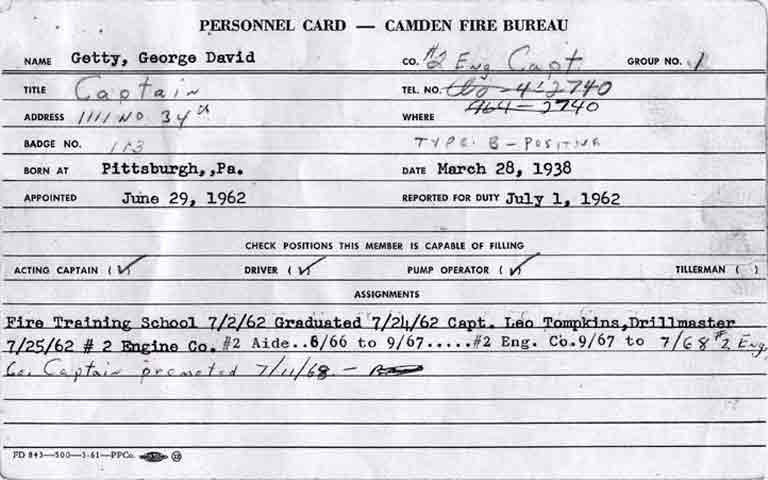 PERSONNEL CARD — CAMDEN FIRE BUREAU
NAME Getty, George David CO. #2 Eng Capt. GROUP NO. 1
TITLE Captain TEL. NO. 4-2740
ADDRESS 1111 NO 34th WHERE 964-2740
BADGE NO. 113 TYPE: B-POSITIVE
BORN AT Pittsburgh,,Pa. DATE March 28, 1938
APPOINTED June 29, 1962 REPORTED FOR DUTY July 1, 1962
CHECK POSITIONS THIS MEMBER IS CAPABLE OF FILLING
ACTING CAPTAIN (✓) DRIVER (✓) PUMP OPERATOR (✓) TILLERMAN ( )
ASSIGNMENTS
Fire Training School 7/2/62 Graduated 7/24/62 Capt. Leo Tompkins,Drillmaster
7/25/62 # 2 Engine Co. #2 Aide..6/66 to 9/67.....#2 Eng. Co.9/67 to 7/68 #2 Eng.
Co. Captain promoted 7/11/68 —
FD 843—500—3-61—PPCo.